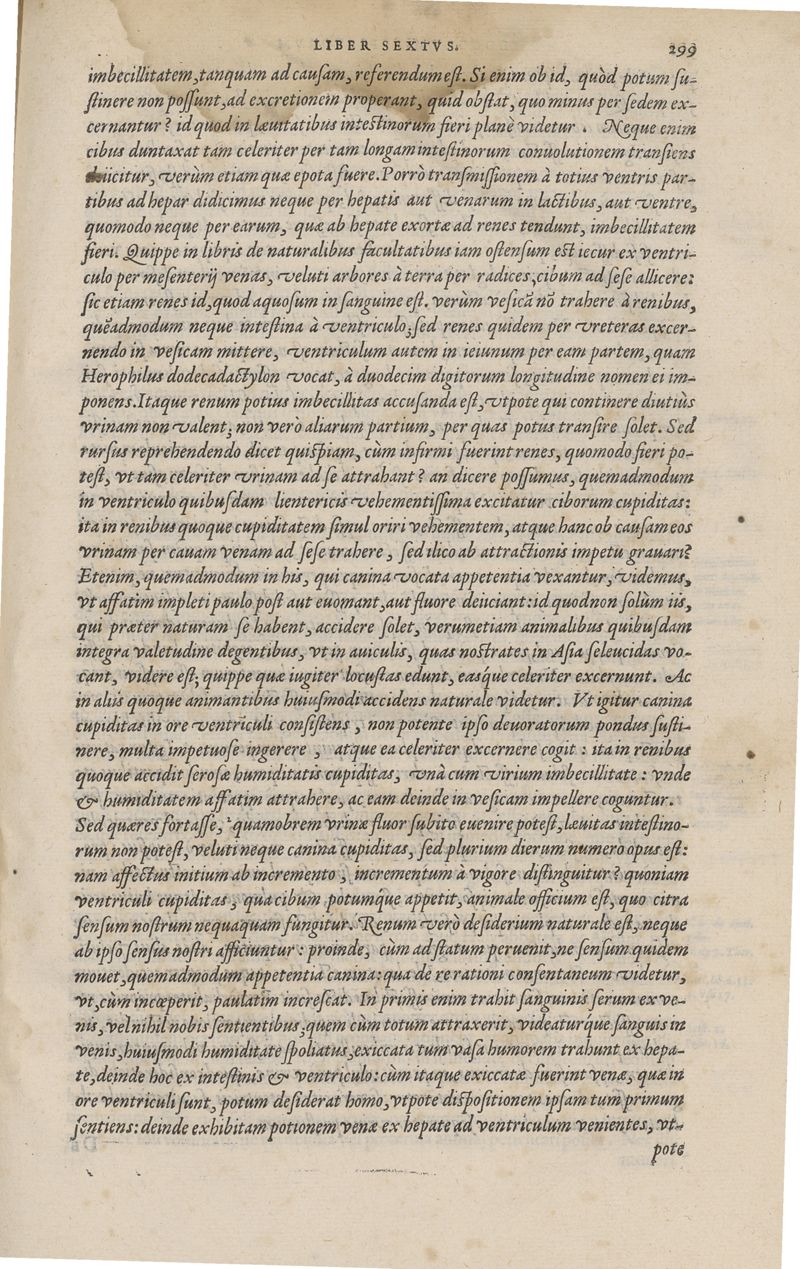 LIBER SEXTVS.
299
imbecillitatem, tanquam ad causam, referendum est. Si enim ob id, quòd potum su-
stinere non possunt, ad excretionem properant, quid obstat, quo minus per sedem ex-
cernantur? id quod in læuitatibus intestinorum fieri planè videtur. Neque enim
cibus duntaxat tam celeriter per tam longam intestinorum conuolutionem transiens
deiicitur, verùm etiam quæ epota fuere. Porrò transmissionem à totius ventris par-
tibus ad hepar didicimus neque per hepatis aut venarum in lactibus, aut ventre,
quomodo neque per earum, quæ ab hepate exortæ ad renes tendunt, imbecillitatem
fieri. Quippe in libris de naturalibus facultatibus iam ostensum est iecur ex ventri-
culo per mesenterij venas, veluti arbores à terra per radices, cibum ad sese allicere:
sic etiam renes id, quod aquosum in sanguine est. verùm vesicā nō trahere à renibus,
quēadmodum neque intestina à ventriculo; sed renes quidem per vreteras excer-
nendo in vesicam mittere, ventriculum autem in ieiunum per eam partem, quam
Herophilus dodecadactylon vocat, à duodecim digitorum longitudine nomen ei im-
ponens. Itaque renum potius imbecillitas accusanda est, vtpote qui continere diutiùs
vrinam non valent; non verò aliarum partium, per quas potus transire solet. Sed
rursus reprehendendo dicet quispiam, cùm infirmi fuerint renes, quomodo fieri po-
test, vt tam celeriter vrinam ad se attrahant? an dicere possumus, quemadmodum
in ventriculo quibusdam lientericis vehementissima excitatur ciborum cupiditas:
ita in renibus quoque cupiditatem simul oriri vehementem, atque hanc ob causam eos
vrinam per cauam venam ad sese trahere, sed ilico ab attractionis impetu grauari?
Etenim, quemadmodum in his, qui canina vocata appetentia vexantur, videmus,
vt affatim impleti paulo post aut euomant, aut fluore deiiciant: id quod non solùm iis,
qui præter naturam se habent, accidere solet, verumetiam animalibus quibusdam
integra valetudine degentibus, vt in auiculis, quas nostrates in Asia seleucidas vo-
cant, videre est; quippe quæ iugiter locustas edunt, easque celeriter excernunt. Ac
in aliis quoque animantibus huiusmodi accidens naturale videtur. Vt igitur canina
cupiditas in ore ventriculi consistens, non potente ipso deuoratorum pondus susti-
nere, multa impetuose ingerere, atque ea celeriter excernere cogit: ita in renibus
quoque accidit serosæ humiditatis cupiditas, vnà cum virium imbecillitate: vnde
& humiditatem affatim attrahere, ac eam deinde in vesicam impellere coguntur.
Sed quæres fortasse, quamobrem vrinæ fluor subito euenire potest, læuitas intestino-
rum non potest, veluti neque canina cupiditas, sed plurium dierum numero opus est:
nam affectus initium ab incremento, incrementum à vigore distinguitur? quoniam
ventriculi cupiditas, qua cibum potumque appetit, animale officium est, quo citra
sensum nostrum nequaquam fungitur. Renum verò desiderium naturale est, neque
ab ipso sensus nostri afficiuntur: proinde, cùm ad statum peruenit, ne sensum quidem
mouet, quemadmodum appetentia canina: qua de re rationi consentaneum videtur,
vt, cùm incœperit, paulatim increscat. In primis enim trahit sanguinis serum ex ve-
nis, vel nihil nobis sentientibus; quem cùm totum attraxerit, videaturque sanguis in
venis, huiusmodi humiditate spoliatus, exiccata tum vasa humorem trahunt ex hepa-
te, deinde hoc ex intestinis & ventriculo: cùm itaque exiccatæ fuerint venæ, quæ in
ore ventriculi sunt, potum desiderat homo, vtpote dispositionem ipsam tum primum
sentiens: deinde exhibitam potionem venæ ex hepate ad ventriculum venientes, vt-
pote